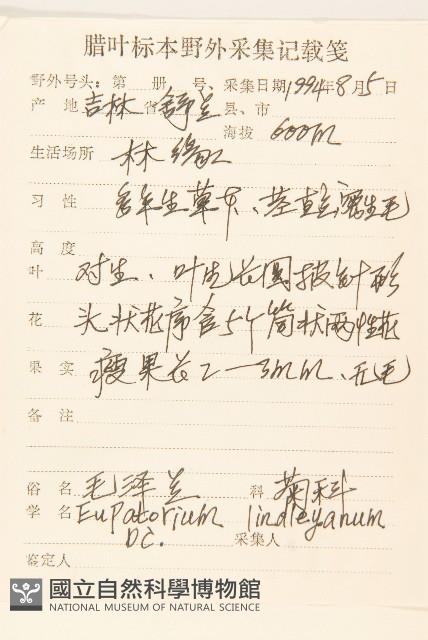 腊叶标本野外采集记载笺
野外号头：第 册 号、采集日期1994年8月5日
产 地吉林省舒兰县、市
海拔 600m
生活场所 林缘
习 性 多年生草本、茎直立密生毛
高 度
叶 对生、叶片长圆披针形
花 头状花序含5个筒状两性花
果 实 瘦果长2—3mm、无毛
备 注
俗 名 毛泽兰 科 菊科
学 名 Eupatorium lindleyanum
DC. 采集人
鉴定人
國立自然科學博物館
NATIONAL MUSEUM OF NATURAL SCIENCE